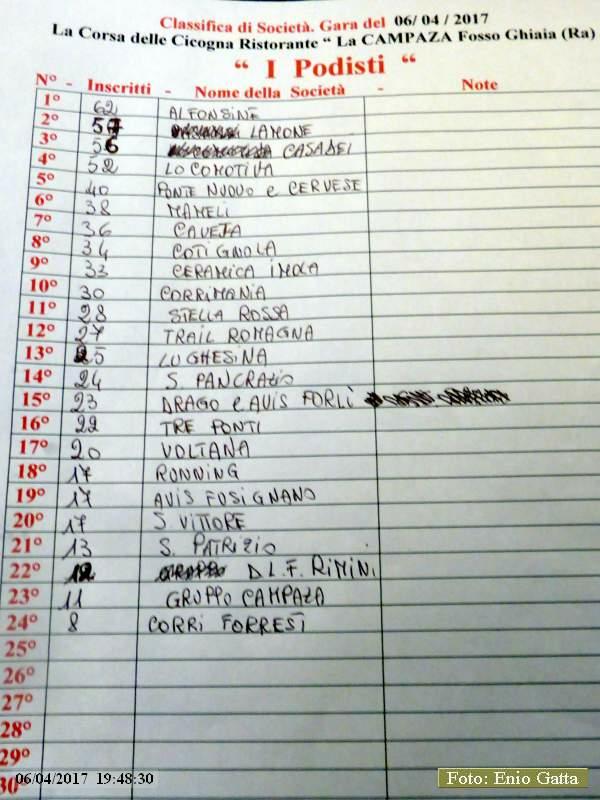 Classifica di Società. Gara del 06/ 04 / 2017
La Corsa delle Cicogna Ristorante “ La CAMPAZA Fosso Ghiaia (Ra)
“ I Podisti “
N° - Inscritti - Nome della Società - Note
1° 62 ALFONSINE
2° 57 LAMONE
3° 56 CASADEI
4° 52 LOCOMOTIVA
5° 40 PONTE NUOVO e CERVESE
6° 38 MAMELI
7° 36 CAVEJA
8° 34 COTIGNOLA
9° 33 CERAMICA IMOLA
10° 30 CORRIMANIA
11° 28 STELLA ROSSA
12° 27 TRAIL ROMAGNA
13° 25 LUGHESINA
14° 24 S. PANCRAZIO
15° 23 DRAGO e AVIS FORLÌ
16° 22 TRE PONTI
17° 20 VOLTANA
18° 17 RONNING
19° 17 AVIS FUSIGNANO
20° 17 S. VITTORE
21° 13 S. PATRIZIO
22° 12 D L. F. RIMINI
23° 11 GRUPPO CAMPAZA
24° 8 CORRI FORREST
25°
26°
27°
28°
29°
30°
06/04/2017 19:48:30
Foto: Enio Gatta